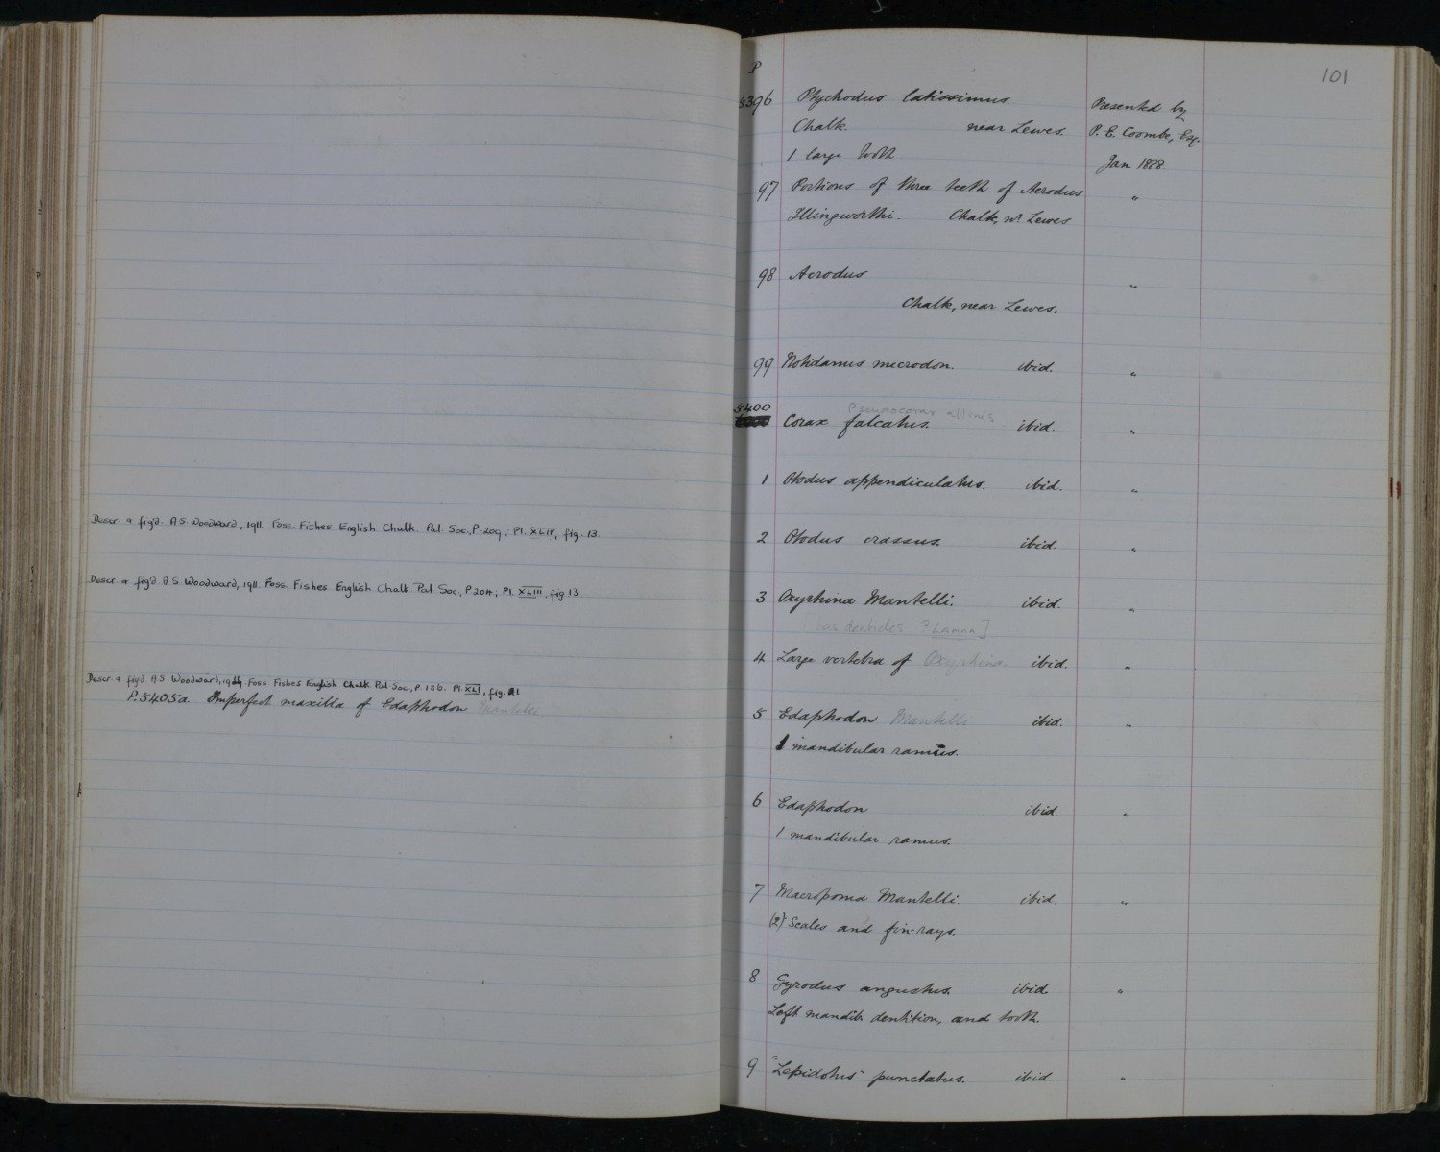 Descr. & fig'd. A.S. Woodward, 1911. Foss. Fishes English Chalk. Pal. Soc., P. 209; Pl. XLIV, fig. 13.
Descr. & fig'd. A.S. Woodward, 1911. Foss. Fishes English Chalk. Pal. Soc., P. 204; Pl. XLIII, fig. 13
Descr. & fig'd. A.S. Woodward, Foss. Fishes English Chalk Pal. Soc., P. 186. Pl. XLI, fig. 1
P.5405a. Imperfect maxilla of Edaphodon Mantelli
101
P
5396 Ptychodus latissimus Presented by
Chalk. near Lewes. P. E. Coombe, Esq.
1 large tooth Jan 1888.
97 Portions of three teeth of Acrodus "
Illingworthi. Chalk, nr Lewes
98 Acrodus "
Chalk, near Lewes.
99 Notidanus microdon. ibid. "
Pseudocorax affinis
5400 Corax falcatus. ibid. "
1 Otodus appendiculatus. ibid. "
2 Otodus crassus. ibid. "
3 Oxyrhina Mantelli. ibid. "
[ ? Lamna]
4 Large vertebra of Oxyrhina. ibid. "
5 Edaphodon Mantelli ibid. "
1 mandibular ramus.
6 Edaphodon ibid "
1 mandibular ramus.
7 Macropoma Mantelli. ibid. "
(2) Scales and fin-rays.
8 Gyrodus angustus. ibid. "
Left mandib. dentition, and tooth.
9 "Lepidotus" punctatus. ibid "